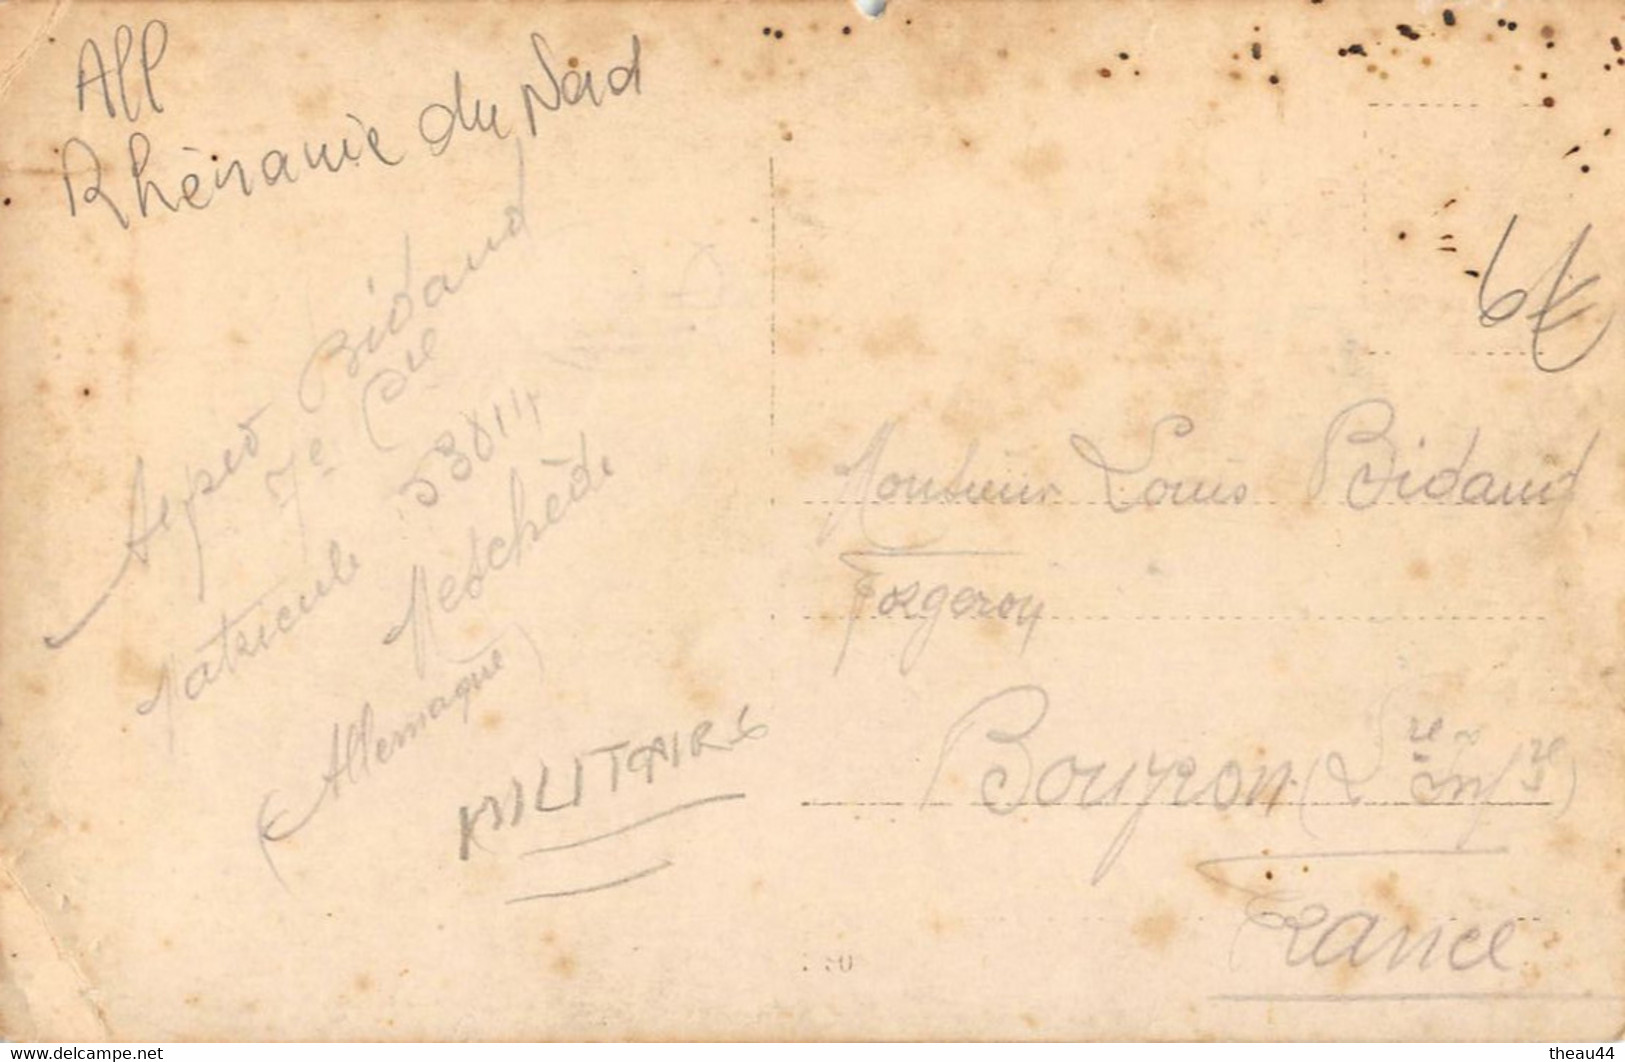 All
Rhénanie du Nord
6€
Bidaud
7e Cie
Matricule 53814
Meschède
(Allemagne)
MILITAIRE
Monsieur Louis Bidaud
Forgeron
Bouyron (Lre Infre)
France
delcampe.net
theau44